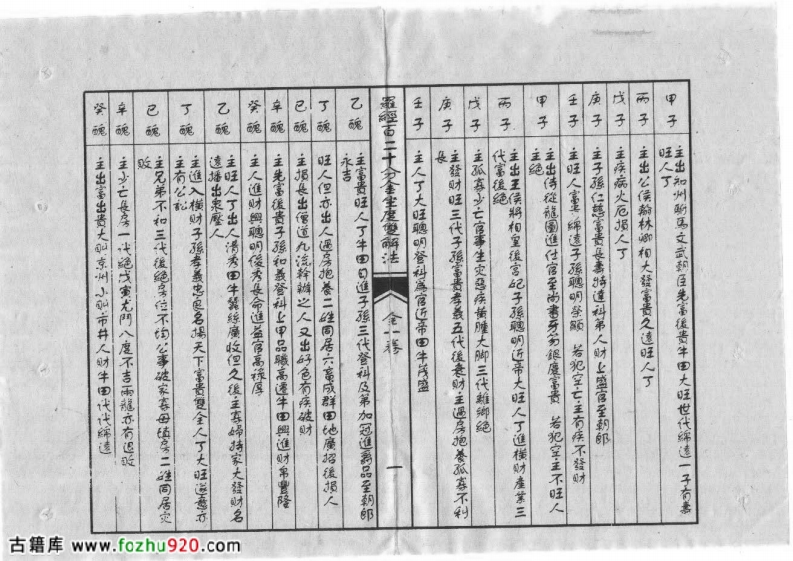 甲子
主出知州駙馬文武朝臣先富後貴牛田大旺世代綿遠一子有壽
旺人丁
丙子
主出公侯翰林卿相大發富貴久遠旺人丁
戊子
主疾病火厄損人丁
庚子
主子孫仁慈富貴長壽特達科第人財上盛官至朝郎
壬子
主旺人富貴綿遠子孫聰明榮顯 若犯空亡主有疾不發財
甲子
主出侍從龍圖進仕官至尚書牙笏銀魚富貴 若犯空主不旺人
主絕
丙子
主出王侯將相皇后宮妃子孫聰明近帝大旺人丁進橫財產業三
代富後絕
戊子
主孤寡少亡官事生災惡疾黃腫大脚三代離鄉絕
庚子
主發財旺三代子孫富貴孝義五代後衰財主過房抱養孤寡不利
長
壬子
主人丁大旺聰明登科為官近帝田牛茂盛
羅經百二十分金坐度雙解法
全一卷
一
乙醜
主富貴旺人丁牛田自進子孫三代登科及第加冠進爵品至朝郎
永吉
丁醜
旺人但亦出人過房抱養二姓同居六畜成群田地廣招後損人
己醜
主損長出僧道九流幹辦之人又出好色有疾破財
辛醜
主先富後貴子孫和義登科上甲品職高遷牛田興進財帛豐隆
癸醜
主人進財興聰明俊秀長命進益官高祿厚
乙醜
主旺人丁出人清秀田牛蠶絲廣收但久後主寡婦持家大發財名
遠播出衆壓人
丁醜
主進入橫財子孫孝義忠臣名揚天下富貴雙全人丁大旺遂意亦
主有公訟
己醜
主兄弟不和三代後絕房位不均公事破家寡母填房二姓同居災
敗
辛醜
主少亡長房一代絕戊寅尤鬥八度不吉兩龍亦有退敗
癸醜
主出富出貴大叫京州小叫市井人財牛田代代綿遠
古籍库 www.fozhu920.com